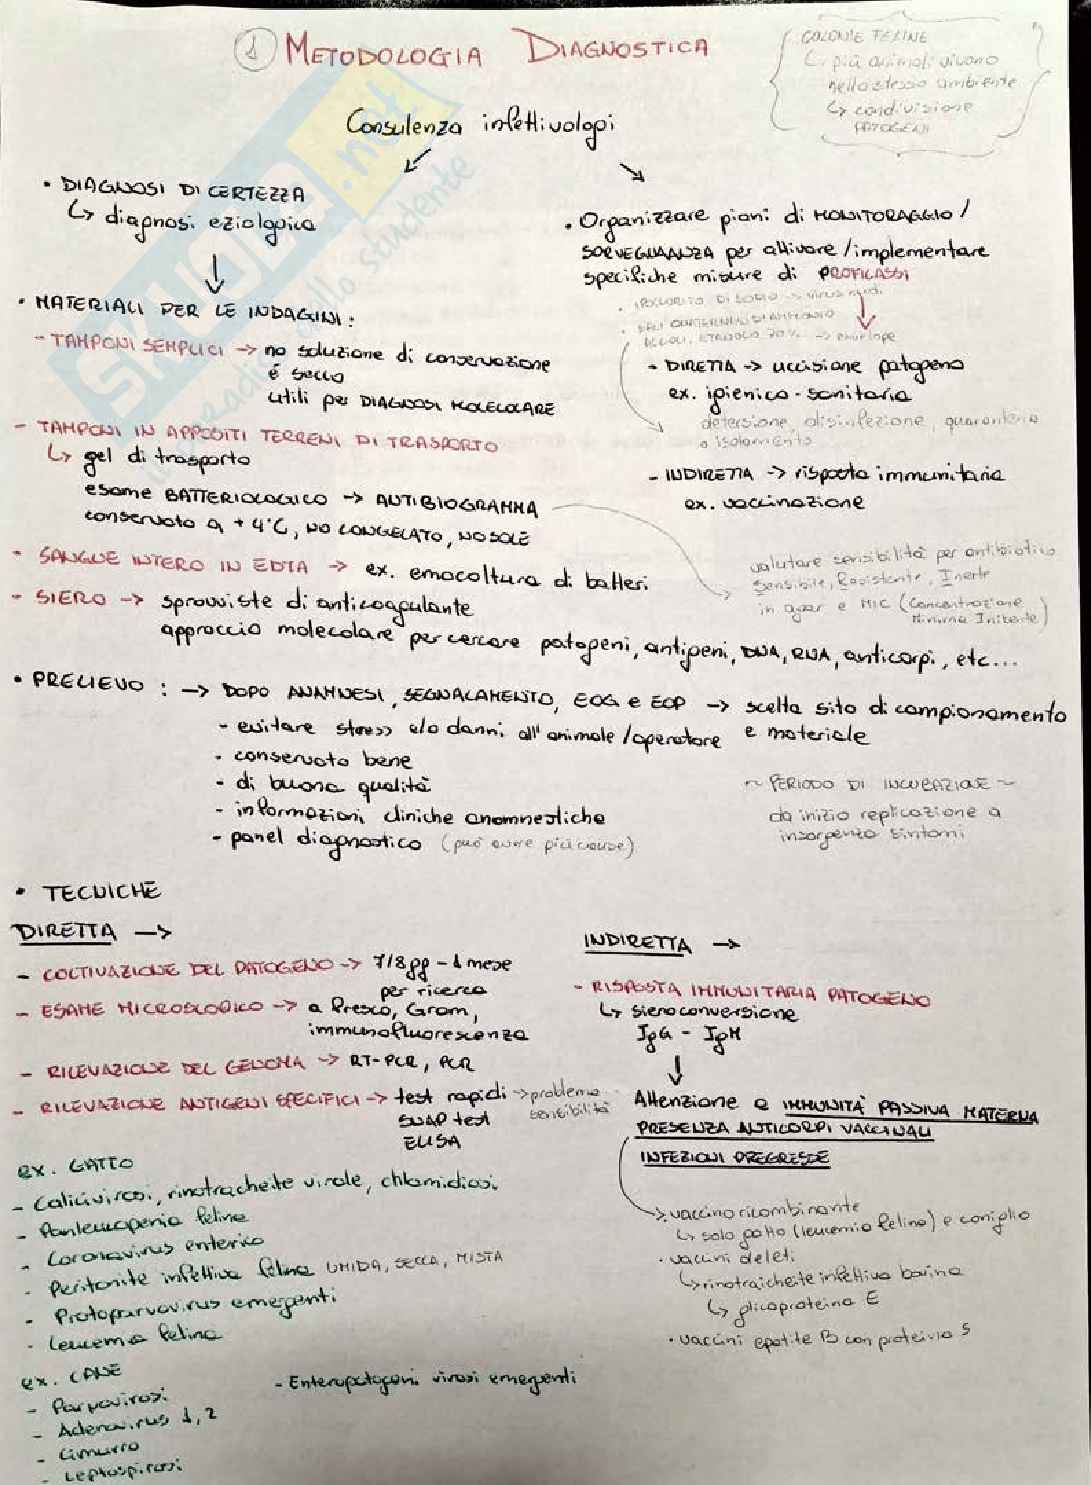 ① METODOLOGIA DIAGNOSTICA
COLONIE FELINE
↳ più animali vivono
nello stesso ambiente
↳ condivisione
PATOGENI
Consulenza infettivologi
• DIAGNOSI DI CERTEZZA
↳ diagnosi eziologica
• MATERIALI PER LE INDAGINI:
- TAMPONI SEMPLICI → no soluzione di conservazione
è secco
utili per DIAGNOSI MOLECOLARE
- TAMPONI IN APPOSITI TERRENI DI TRASPORTO
↳ gel di trasporto
esame BATTERIOLOGICO → ANTIBIOGRAMMA
conservato a +4°C, NO CONGELATO, NO SOLE
- SANGUE INTERO IN EDTA → ex. emocoltura di batteri
- SIERO → sprovviste di anticoagulante
approccio molecolare per cercare patogeni, antigeni, DNA, RNA, anticorpi, etc...
• Organizzare piani di MONITORAGGIO/
SORVEGLIANZA per attivare/implementare
specifiche misure di PROFILASSI
• IPOCLORITO DI SODIO → virus nudi
• SALI QUATERNARI DI AMMONIO
ALCOLI, ETANOLO 70% → envelope
- DIRETTA → uccisione patogeno
ex. igienico-sanitaria
detersione, disinfezione, quarantena
o isolamento
- INDIRETTA → risposta immunitaria
ex. vaccinazione
valutare sensibilità per antibiotico
Sensibile, Resistente, Inerte
in agar e MIC (Concentrazione
Minima Inibente)
• PRELIEVO : → DOPO ANAMNESI, SEGNALAMENTO, EOG e EOP → scelta sito di campionamento
e materiale
- evitare stress e/o danni all'animale/operatore
- conservato bene
- di buona qualità
- informazioni cliniche anamnestiche
- panel diagnostico (può avere più cause)
~ PERIODO DI INCUBAZIONE ~
da inizio replicazione a
insorgenza sintomi
• TECNICHE
DIRETTA →
- COLTIVAZIONE DEL PATOGENO → 7/8gg - 1 mese
per ricerca
- ESAME MICROSCOPICO → a fresco, Gram,
immunofluorescenza
- RILEVAZIONE DEL GENOMA → RT-PCR, PCR
- RILEVAZIONE ANTIGENI SPECIFICI → test rapidi → problema
sensibilità
SNAP test
ELISA
INDIRETTA →
- RISPOSTA IMMUNITARIA PATOGENO
↳ sieroconversione
IgG - IgM
Attenzione a IMMUNITÀ PASSIVA MATERNA
PRESENZA ANTICORPI VACCINALI
INFEZIONI PREGRESSE
→ vaccino ricombinante
↳ solo gatto (leucemia felina) e coniglio
• vaccini deleti
↳ rinotraicheite infettiva bovina
↳ glicoproteina E
• vaccini epatite B con proteina S
ex. GATTO
- Calicivirosi, rinotracheite virale, chlamidiosi
- Panleucopenia felina
- Coronavirus enterico
- Peritonite infettiva felina UMIDA, SECCA, MISTA
- Protoparvovirus emergenti
- Leucemia felina
ex. CANE
- Parvovirosi
- Adenovirus 1, 2
- Cimurro
- Leptospirosi
- Enteropatogeni virosi emergenti
SKUOLA.net